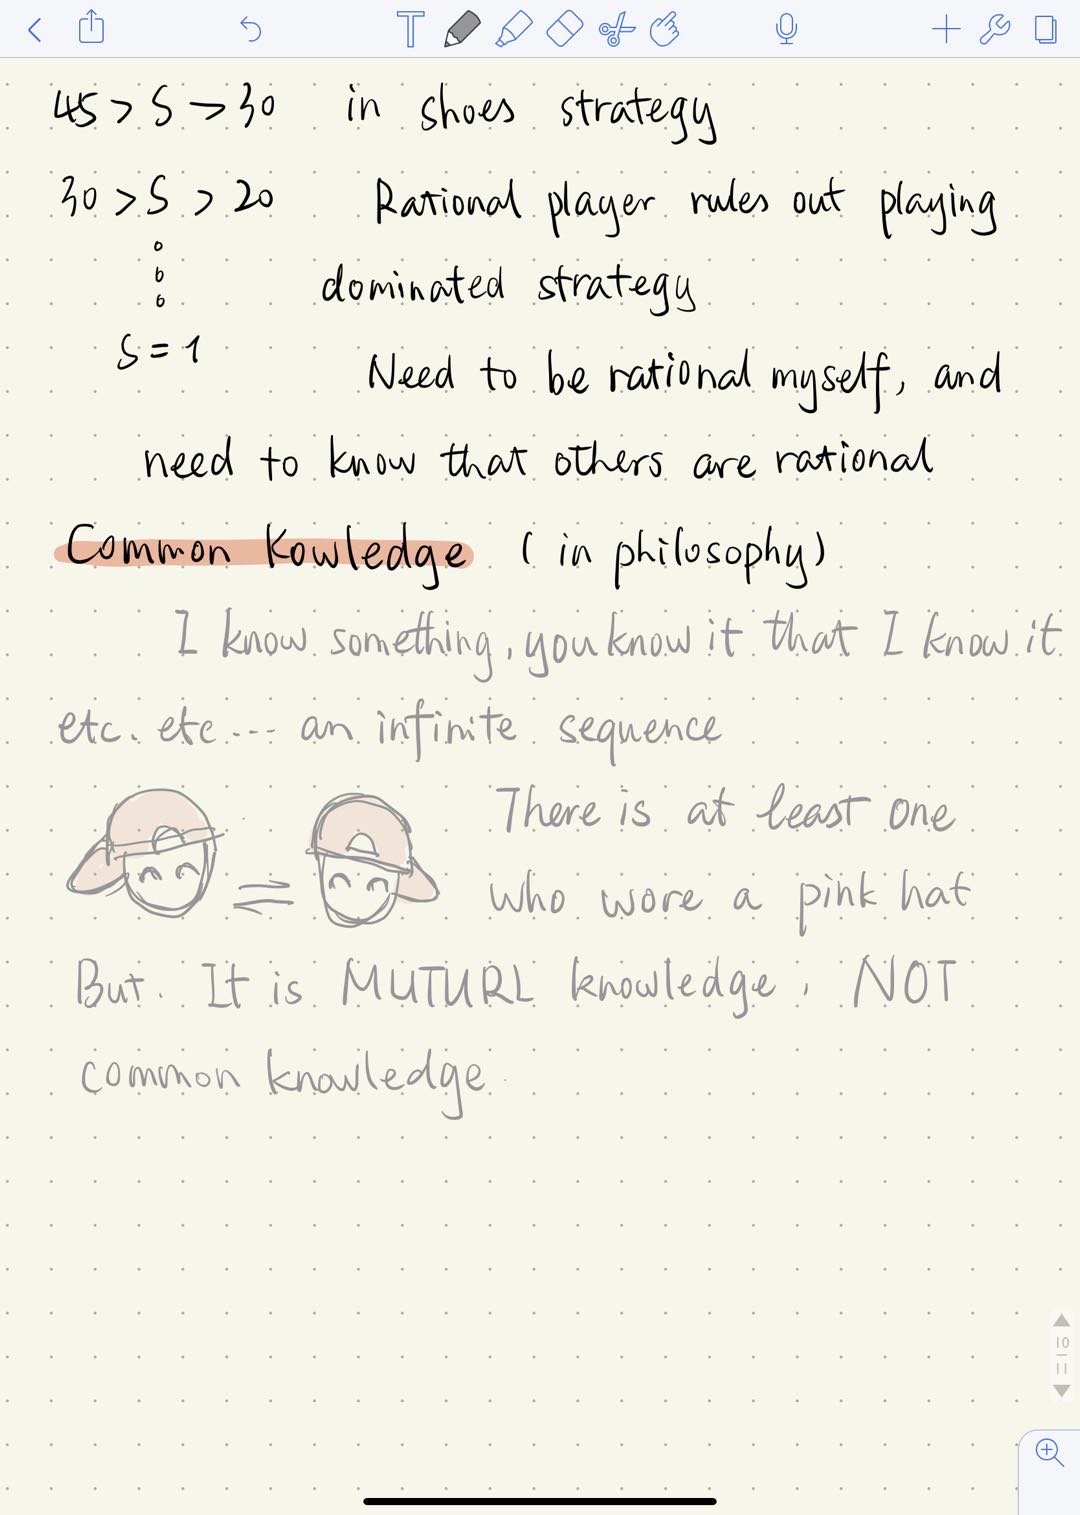 45 > S > 30 in shoes strategy
30 > S > 20 Rational player rules out playing
dominated strategy
S = 1
Need to be rational myself, and
need to know that others are rational
Common Kowledge ( in philosophy)
I know something, you know it that I know it
etc. etc... an infinite sequence
There is at least one
=
who wore a pink hat
But. It is MUTURL knowledge, NOT
common knowledge.
10
11